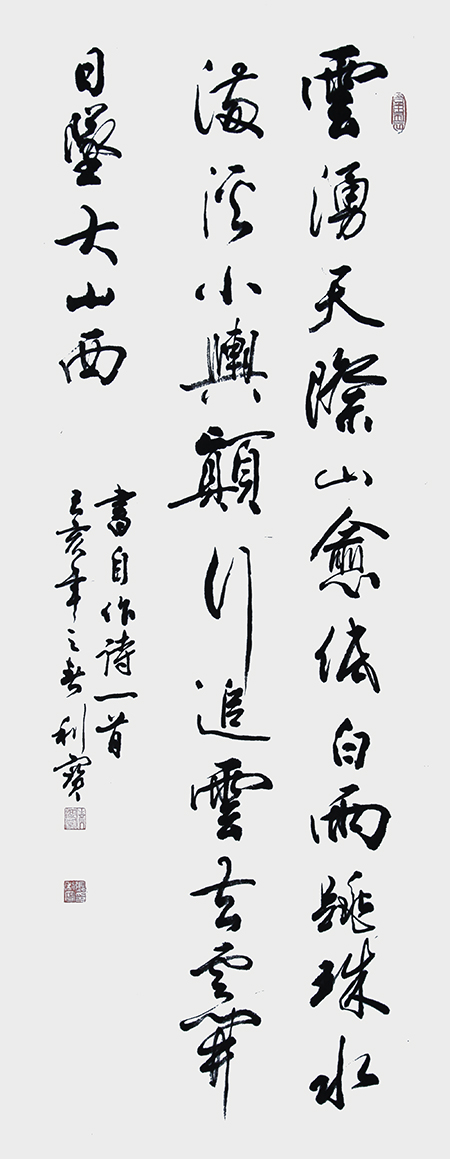 雲湧天際山愈低白雨跳珠水
滿溪小輿顛行追雲去雲開
日墜大山西
書自作詩一首
己亥年之春利寶